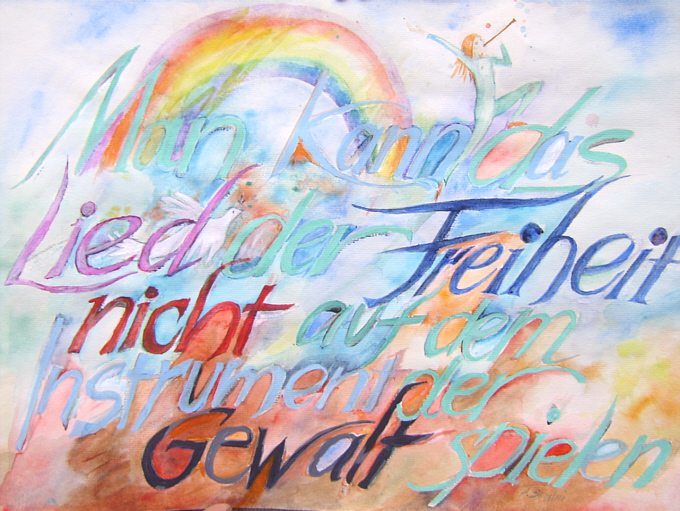 Man kann das
Lied der Freiheit
nicht auf dem
Instrument der
Gewalt spielen